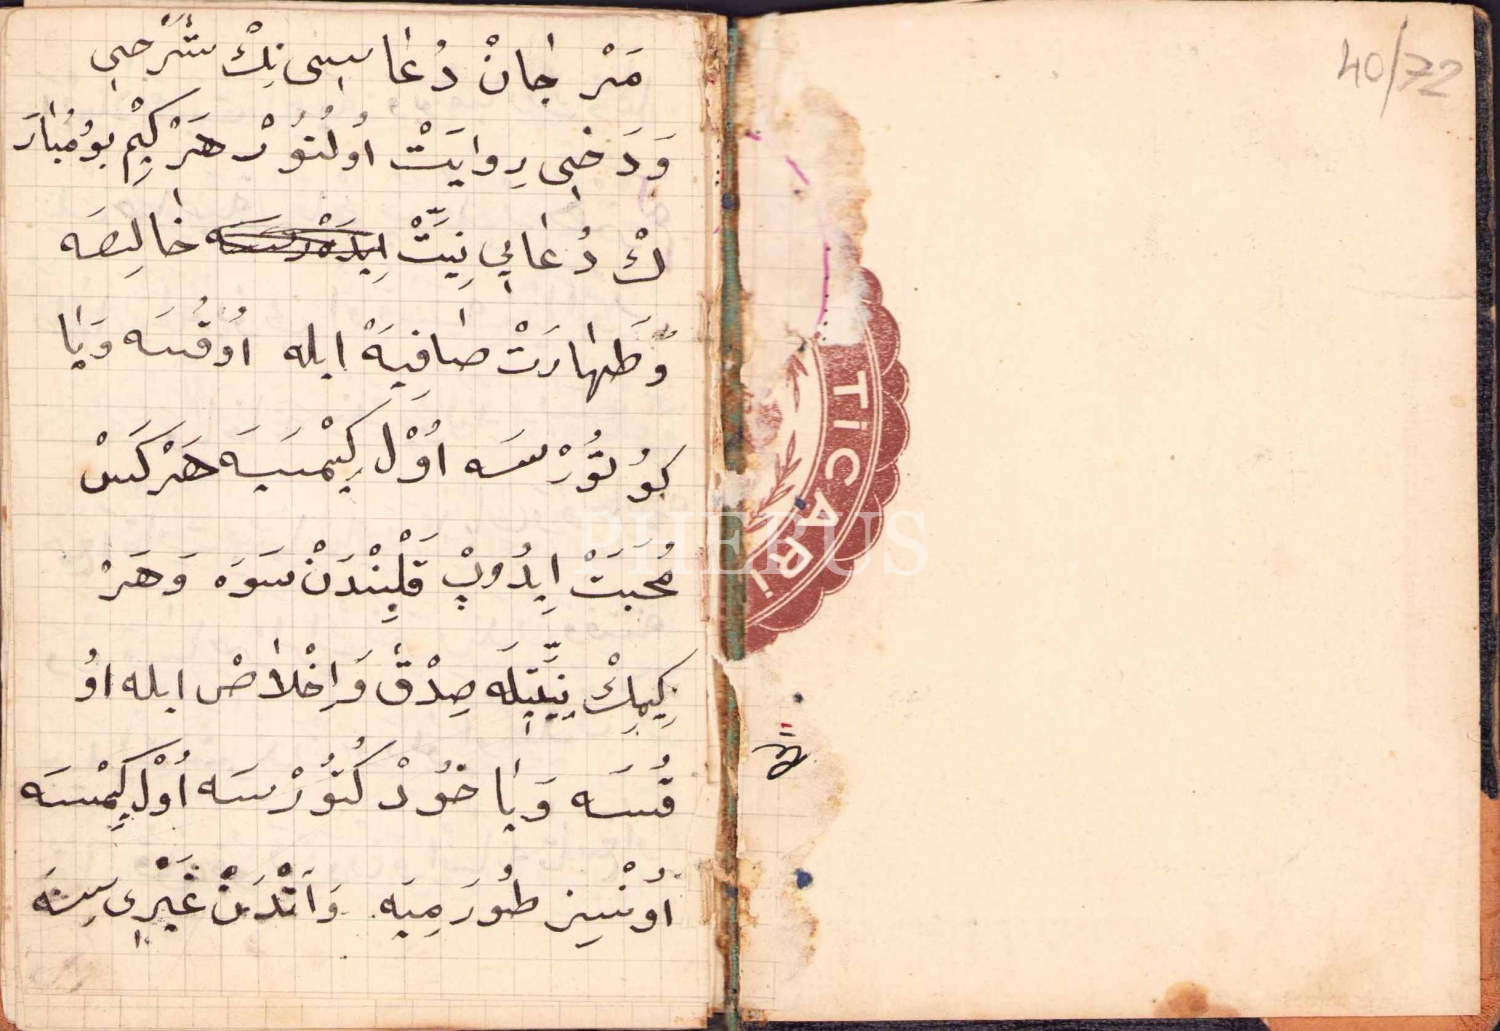 مَرْجانْ دُعٰا سِى نِكْ شَرْحِى
وَدَخِى رِوايَتْ اُولُنُورْ هَرْ كِيْم بُو مُبٰارَ
كْ دُعٰايِى نِيَّتْ خٰالِصَه
وَطَهٰارَتْ صٰافِيَهْ ايله اُوقُسَه وَيٰا
كُوتُورْسَه اُوْل كِيْمسَيَه هَرْكَسْ
مُحَبَتْ اِيدُوبْ قَلْبِنْدَنْ سَوَه وَهَرْ
كِيمِكْ نِيَّتِلَه صِدْقْ وَاِخْلاٰصْ ايله اوُ
قُسَه وَيٰا خُودْ كُتُورْسَه اُوْل كِمْسَه
اُونْسِز طُورَمِيَه وَاَنْدَنْ غَيْرِى سِنَه
40/72
TİCARİ
PHEBUS